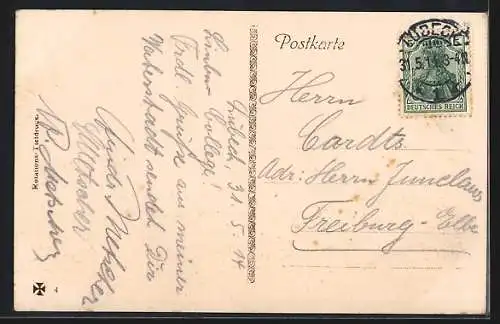 Postkarte
LÜBECK
31.5.14. 3-4N.
DEUTSCHES REICH
Herrn
Cardts
Adr: Herrn Junclaus
Freiburg-Elbe
Lübeck, 31.5.14
Lieber College!
Frdl. Grüße aus meiner
Vaterstadt sendet Dir
Rotations-Tiefdruck.
4